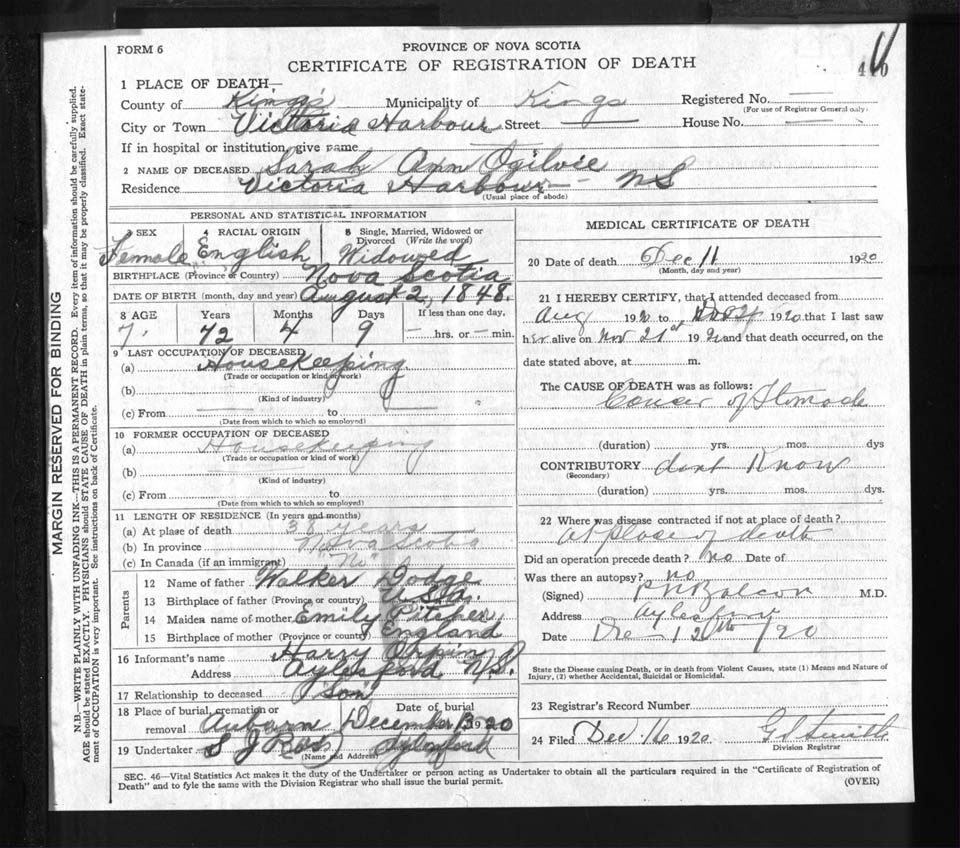 FORM 6
PROVINCE OF NOVA SCOTIA
CERTIFICATE OF REGISTRATION OF DEATH
1 PLACE OF DEATH—
County of Kings Municipality of Kings Registered No. —
(For use of Registrar General only)
City or Town Victoria Harbour Street — House No. —
If in hospital or institution, give name
2 NAME OF DECEASED Sarah Ann Ogilvie
Residence Victoria Harbour — NS
(Usual place of abode)
PERSONAL AND STATISTICAL INFORMATION
3 SEX 4 RACIAL ORIGIN 5 Single, Married, Widowed or Divorced (Write the word)
Female English Widowed
BIRTHPLACE (Province or Country) Nova Scotia
DATE OF BIRTH (month, day and year) August 2, 1848.
8 AGE Years Months Days If less than one day,
72 4 9 — hrs. or — min.
9 LAST OCCUPATION OF DECEASED
(a) Housekeeping
(Trade or occupation or kind of work)
(b)
(Kind of industry)
(c) From — to —
(Date from which to which so employed)
10 FORMER OCCUPATION OF DECEASED
(a) Housekeeping
(Trade or occupation or kind of work)
(b)
(Kind of industry)
(c) From to
(Date from which to which so employed)
11 LENGTH OF RESIDENCE (In years and months)
(a) At place of death 38 years
(b) In province Nova Scotia
(c) In Canada (if an immigrant) "No"
Parents
12 Name of father Walker Dodge
13 Birthplace of father (Province or country) U.S.A.
14 Maiden name of mother Emily
15 Birthplace of mother (Province or country) England
16 Informant's name Harry Orpin
Address Aylesford N.S.
17 Relationship to deceased Son
18 Place of burial, cremation or removal Auburn Date of burial December 13 1920
19 Undertaker S J Ross Aylesford
(Name and Address)
MEDICAL CERTIFICATE OF DEATH
20 Date of death Dec 11 1920
(Month, day and year)
21 I HEREBY CERTIFY, that I attended deceased from
Aug 1920 to 1920 that I last saw
her alive on Nov 21st 1920 and that death occurred, on the
date stated above, at m.
The CAUSE OF DEATH was as follows:
Cancer of Stomach
(duration) yrs. mos. dys
CONTRIBUTORY dont Know
(Secondary)
(duration) yrs. mos. dys.
22 Where was disease contracted if not at place of death?
At place of death
Did an operation precede death? no Date of
Was there an autopsy? no
(Signed) M.D.
Address Aylesford
Date Dec 12th /20
State the Disease causing Death, or in death from Violent Causes, state (1) Means and Nature of
Injury, (2) whether Accidental, Suicidal or Homicidal.
23 Registrar's Record Number
24 Filed Dec. 16 1920
Division Registrar
SEC. 46—Vital Statistics Act makes it the duty of the Undertaker or person acting as Undertaker to obtain all the particulars required in the "Certificate of Registration of
Death" and to fyle the same with the Division Registrar who shall issue the burial permit.
(OVER)
MARGIN RESERVED FOR BINDING
N.B.—WRITE PLAINLY WITH UNFADING INK—THIS IS A PERMANENT RECORD. Every item of information should be carefully supplied.
AGE should be stated EXACTLY. PHYSICIANS should STATE CAUSE OF DEATH in plain terms, so that it may be properly classified. Exact state-
ment of OCCUPATION is very important. See instructions on back of Certificate.